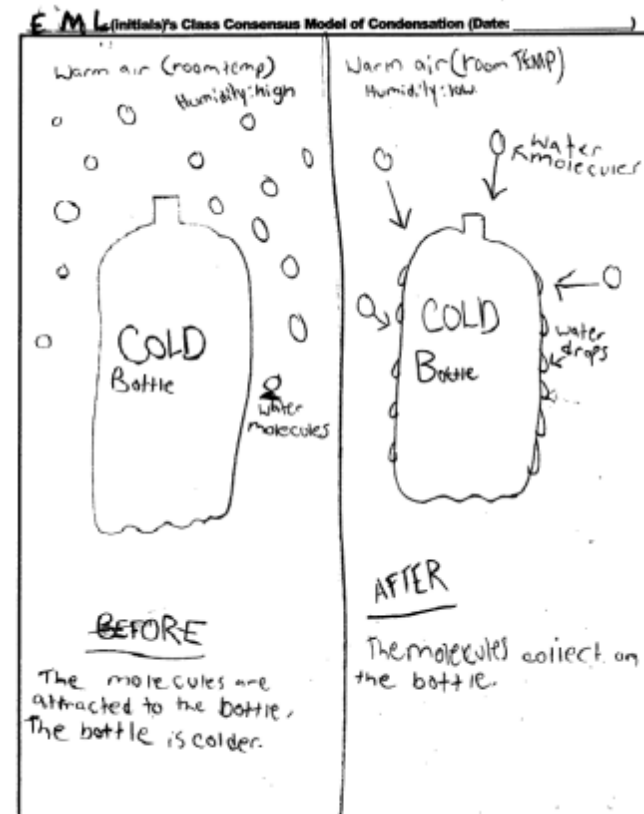 E M L (initials)'s Class Consensus Model of Condensation (Date: ____________)
Warm air (roomtemp)
Humidity: high
COLD
Bottle
water
molecules
BEFORE
The molecules are
attracted to the bottle.
The bottle is colder.
Warm air (room TEMP)
Humidity: low
water
molecules
COLD
Bottle
water
drops
AFTER
The molecules collect on
the bottle.